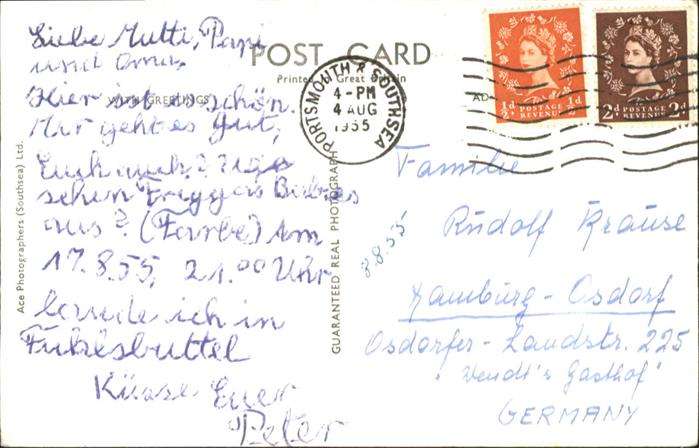 Liebe Mutti, Papi
und Oma,
Hier ist es schön.
Mir geht es gut,
Euch auch? Wie
sehen Friggas Babies
aus? (Farbe) Am
17.8.55, 21.00 Uhr
lande ich in
Fuhlsbüttel
Küsse Euer
Peter
POST CARD
Printed in Great Britain
WITH GREETINGS
AD
Ace Photographers (Southsea) Ltd.
GUARANTEED REAL PHOTOGRAPH
PORTSMOUTH & SOUTHSEA
4-PM
4 AUG
1955
½d POSTAGE REVENUE ½d
2d POSTAGE REVENUE 2d
8.8.55
Familie
Rudolf Krause
Hamburg-Osdorf
Osdorfer-Landstr. 225
"Wendt's Gasthof"
GERMANY